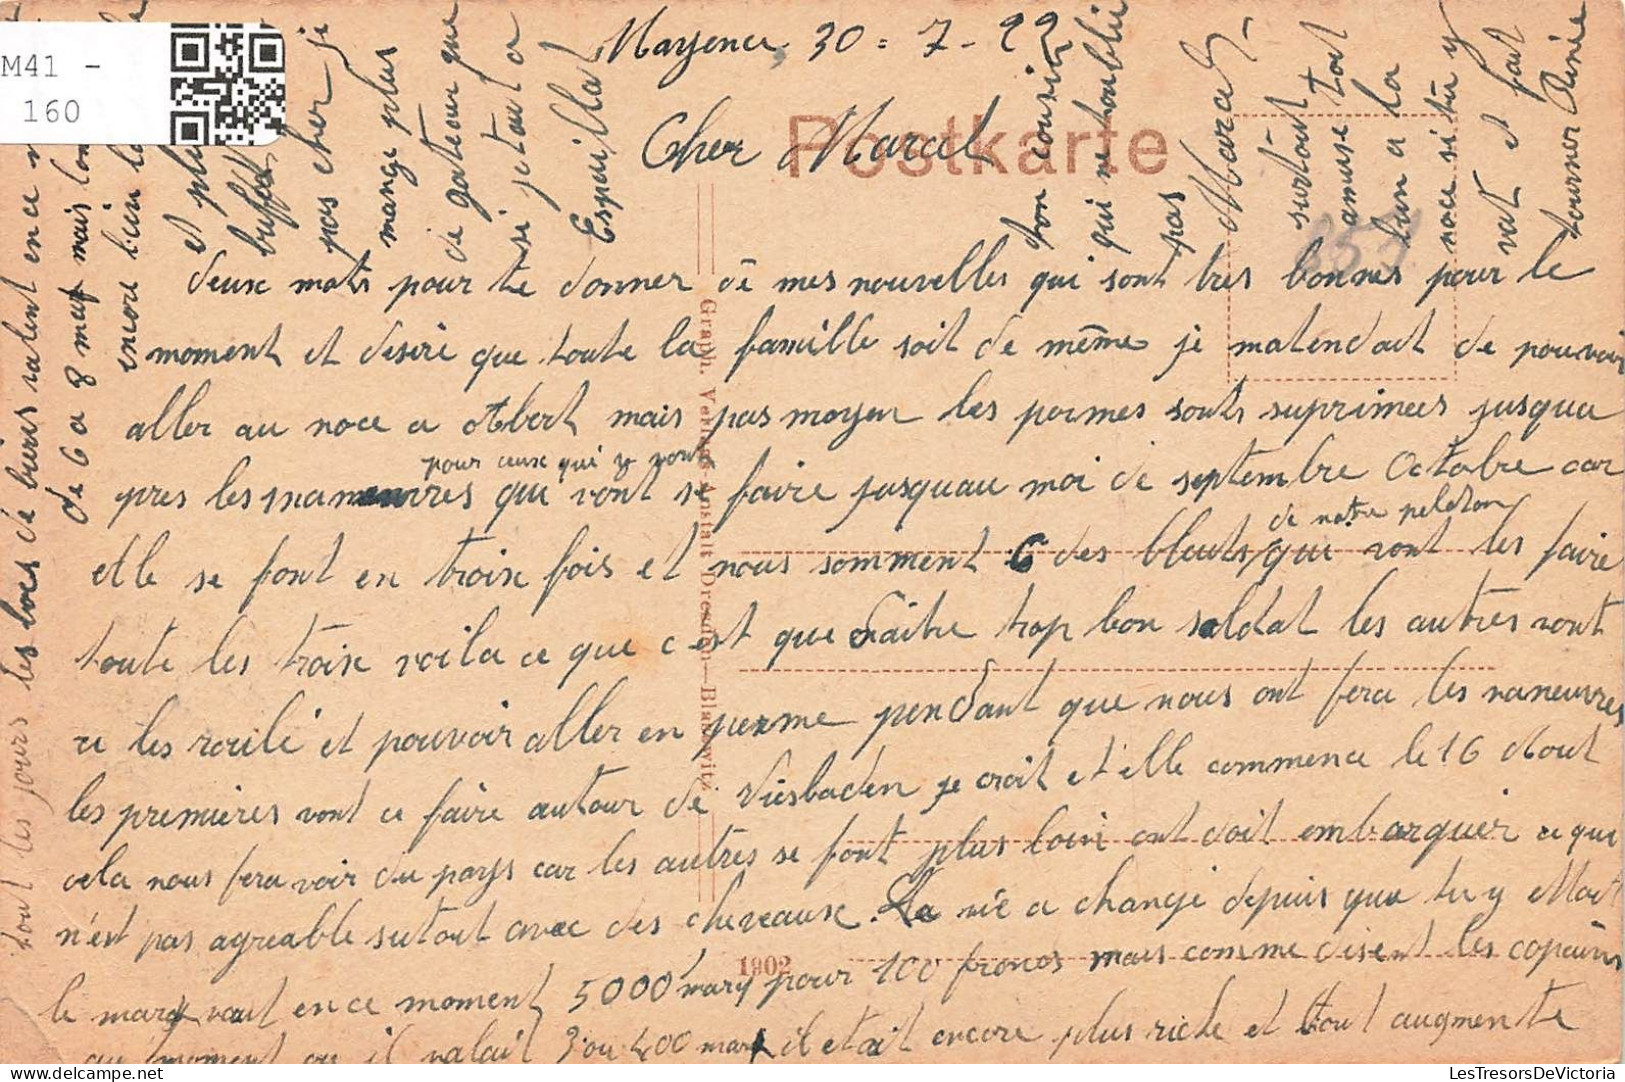 M41 -
160
Mayence 30 = 7 - 22
Postkarte
Cher Marcel
deux mots pour te donner de mes nouvelles qui sont tres bonnes pour le
moment et desire que toute la famille soit de même je matendait de pouvoir
aller au noce a Albert mais pas moyen les permes sonts suprimees jusqua
pour ceux qui y vont
pres les maneuvres qui vont se faire jusquau moi de septembre Octobre car
de notre peleton
elle se font en troix fois et nous somment 6 des bleuts qui vont les faire
toute les troix voila ce que c est que daitre trop bon soldat les autres vont
ce les roulé et pouvoir aller en perme pendant que nous ont fera les maneuvres
les premieres vont ce faire autour de Viesbaden je croit et elle commence le 16 Aout
cela nous fera voir du pays car les autres se font plus loin ont doit embarquer ce qui
n'est pas agreable surtout avec des cheveaux. La vie a changé depuis que tu y etait
le mark vaut en ce moment 5000 mark pour 100 francs mais comme disent les copains
au moment ou il valait 3 ou 400 mark il etait encore plus riche et tout augmente
tout les jours les bocs de bieres valent en ce
de 6 a 8 mark mais
encore bien
et plus
buffet
pas cher je
mange plus
de gateaux que
si jetout a
Espaillat
Ton cousin
qui ne toublie
pas
Marcel
surtout
amuse toit
bien a la
noce si tu y
vat et fait
tourner Renée
653
Graph. Verlags-Anstalt Dresden-Blasewitz
1902
LesTresorsDeVictoria